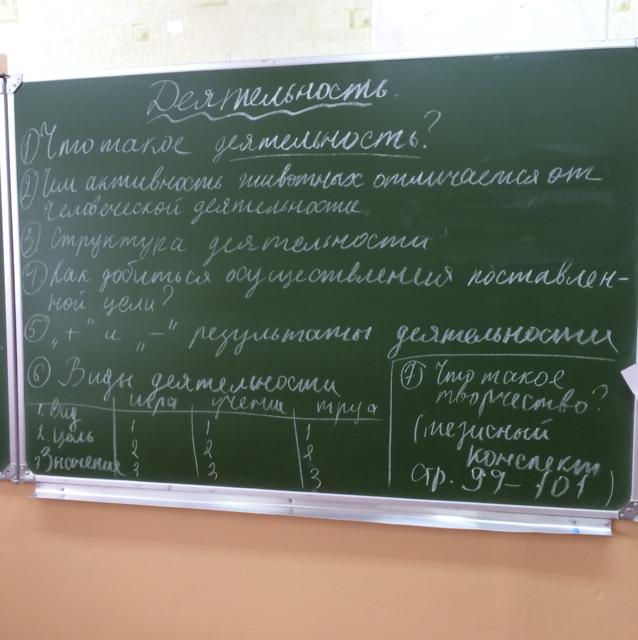 Деятельность.
① Что такое деятельность?
② Чем активность животных отличается от
человеческой деятельности
③ Структура деятельности
④ Как добиться осуществления поставлен-
ной цели?
⑤ „+" и „–" результаты деятельности
⑥ Виды деятельности
игра учение труд
1. Вид 1 1 1
2. цель 2 2 2
3 значение 3 3 3
⑦ Что такое
творчество?
(тезисный
конспект
стр. 99–101)